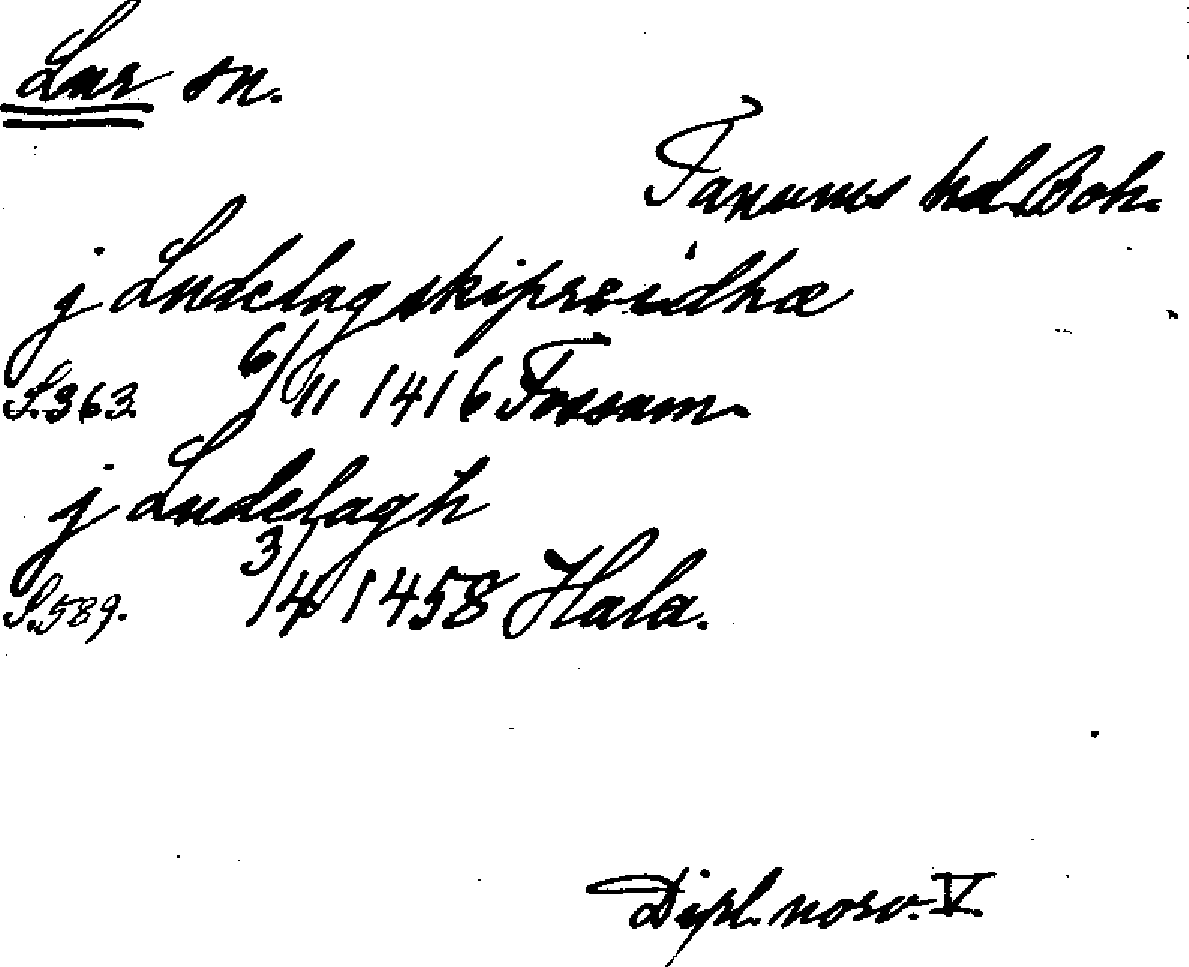 Lur sn.
Tanums hd. Boh.
j Ludelag skipreidhæ
S. 363. 6/11 1416 Fossum.
j Ludelagh
S. 589. 3/4 1458 Hala.
Dipl. norv. V.